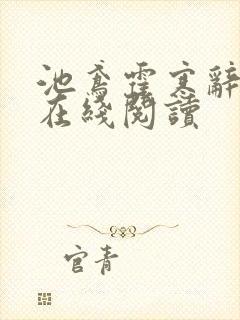 池鸢霍寒辭
在綫閱讀
官青